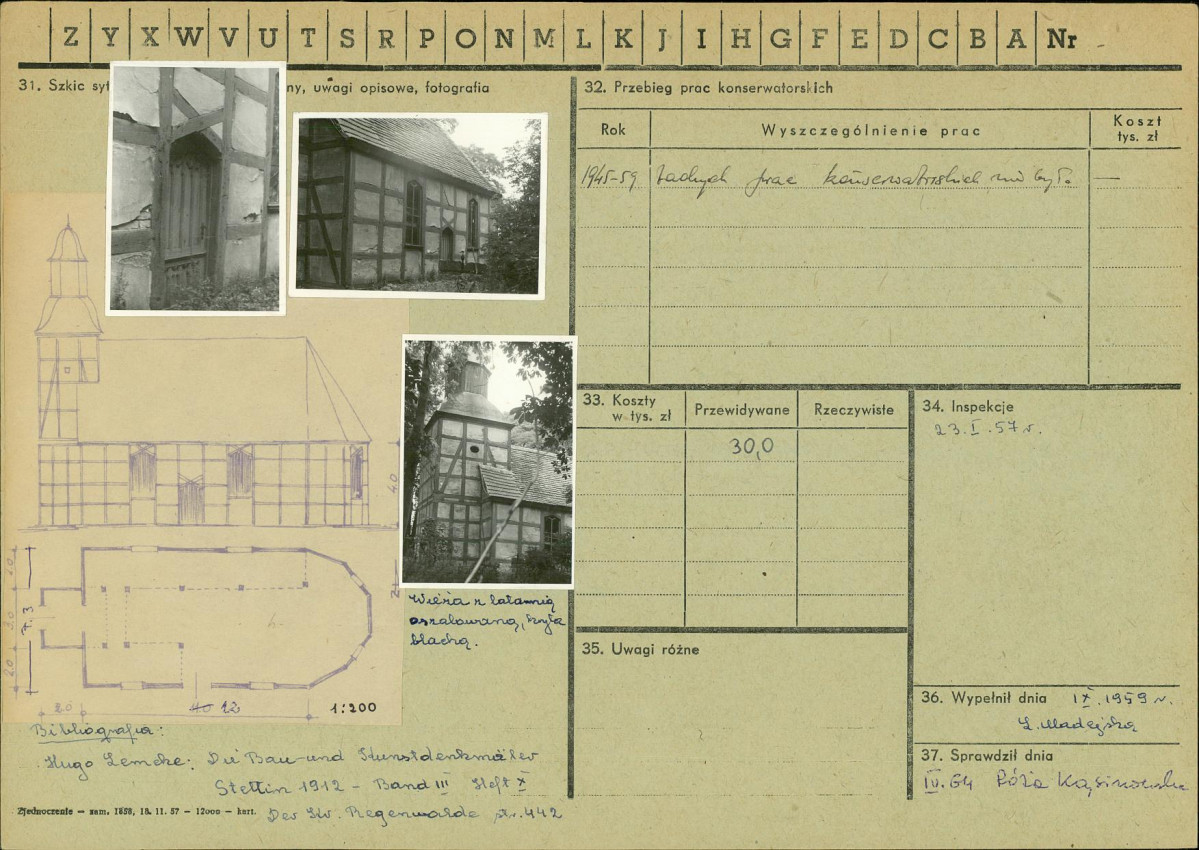 Z Y X W V U T S R P O N M L K J I H G F E D C B A Nr
31. Szkic syt ny, uwagi opisowe, fotografia
4,0
2,0
3,0
2,0
7.3
2.0
12
1:200
Wieża z latarnią
oszalowaną, kryta
blachą.
Bibliografia:
Hugo Lemcke: Die Bau- und Kunstdenkmäler
Stettin 1912 - Band III Heft X
Der Kr. Regenwalde str. 442
Zjednoczenie — zam. 1858, 18. 11. 57 — 12000 — kart.
32. Przebieg prac konserwatorskich
Rok Wyszczególnienie prac Koszt
tys. zł
1945-59 żadnych prac konserwatorskich nie było. —
33. Koszty
w tys. zł Przewidywane Rzeczywiste
30,0
34. Inspekcje
23.I.57 r.
35. Uwagi różne
36. Wypełnił dnia IX.1959 r.
Ł. Madejska
37. Sprawdził dnia
IV.64 Róża Kąsinowska